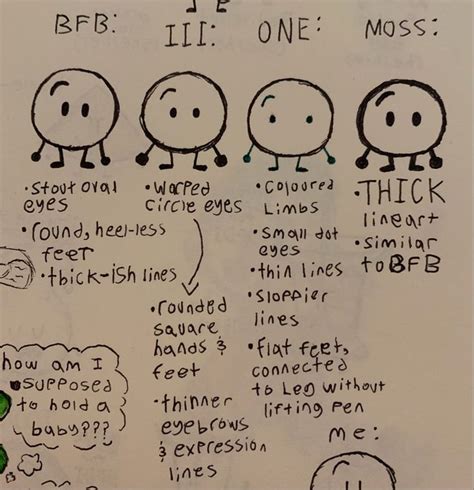 BFB:
III:
ONE:
MOSS:
•Stout oval
eyes
•round, heel-less
feet
•thick-ish lines
•Warped
circle eyes
•rounded
square
hands &
feet
•thinner
eyebrows
& expression
lines
•Coloured
Limbs
•small dot
eyes
•thin lines
•Sloppier
lines
•flat feet,
connected
to Leg without
lifting pen
•THICK
lineart
•similar
to BFB
how am I
supposed
to hold a
baby???
me: